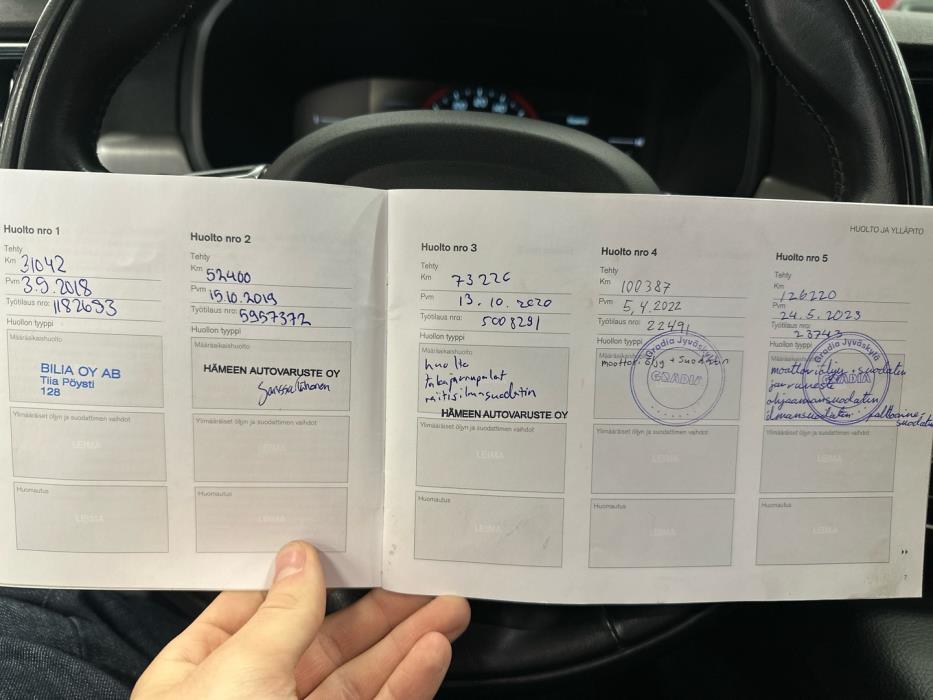 HUOLTO JA YLLÄPITO
Huolto nro 1
Tehty
Km 31042
Pvm 3.9.2018
Työtilaus nro: 1182693
Huollon tyyppi
Määräaikaishuolto
BILIA OY AB
Tiia Pöysti
128
Ylimääräiset öljyn ja suodattimen vaihdot
LEIMA
Huomautus
LEIMA
Huolto nro 2
Tehty
Km 52400
Pvm 15.10.2019
Työtilaus nro: 5957372
Huollon tyyppi
Määräaikaishuolto
HÄMEEN AUTOVARUSTE OY
Ylimääräiset öljyn ja suodattimen vaihdot
LEIMA
Huomautus
LEIMA
Huolto nro 3
Tehty
Km 73226
Pvm 13.10.2020
Työtilaus nro: 5008291
Huollon tyyppi
Määräaikaishuolto
huolto
takajarrupalat
raitisilmasuodatin
HÄMEEN AUTOVARUSTE OY
Ylimääräiset öljyn ja suodattimen vaihdot
LEIMA
Huomautus
LEIMA
Huolto nro 4
Tehty
Km 100387
Pvm 5,4.2022
Työtilaus nro: 22491
Huollon tyyppi
Määräaikaishuolto
moottoriöljy + suodatin
Gradia Jyväskylä
GRADIA
Ylimääräiset öljyn ja suodattimen vaihdot
LEIMA
Huomautus
LEIMA
Huolto nro 5
Tehty
Km 126220
Pvm 24.5.2023
Työtilaus nro: 23743
Huollon tyyppi
Määräaikaishuolto
Gradia Jyväskylä
GRADIA
moottoriöljy + suodatin
jarruneste
ohjaamonsuodatin
ilmansuodatin polttoaine-
suodatin
Ylimääräiset öljyn ja suodattimen vaihdot
LEIMA
Huomautus
LEIMA
7